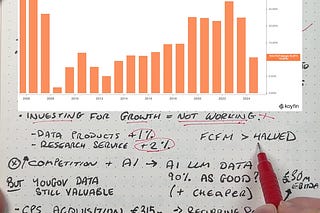 2006 2008 2010 2012 2014 2016 2018 2020 2022 2024
koyfin
• INVESTING FOR GROWTH = NOT WORKING
- DATA PRODUCTS +1%
- RESEARCH SERVICE +2%
FCFM > HALVED
COMPETITION + AI → AI LLM DATA
90% AS GOOD?
(+ CHEAPER)
BUT YOUGOV DATA
STILL VALUABLE
£50m
EBITDA
- CPS ACQUISITION £315m → RECURRING